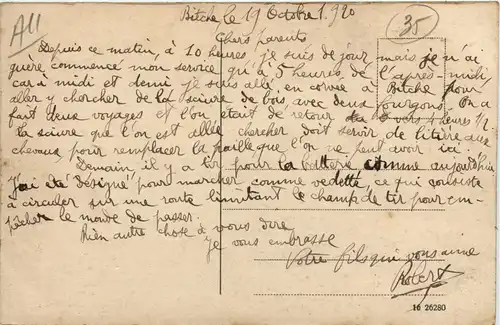 A11
Bitche le 19 Octobre 1920
35
Chers parents
Depuis ce matin, à 10 heures, je suis de jour, mais je n'ai
guère commencé mon service qu'à 5 heures de l'après-midi,
car à midi et demi je suis allé, en corvée à Bitche pour
aller y chercher de la sciure de bois, avec deux fourgons. On a
fait deux voyages et l'on était de retour vers 4 heures 1/2
la sciure que l'on est allée chercher doit servir de litière aux
chevaux, pour remplacer la paille que l'on ne peut avoir ici.
Demain, il y a tir pour la batterie comme aujourd'hui
j'ai été désigné pour marcher comme vedette, ce qui consiste
à circuler sur une route limitant le champ de tir pour em-
pêcher le monde de passer.
Rien autre chose à vous dire
je vous embrasse
Votre fils qui vous aime
Robert
16 26280